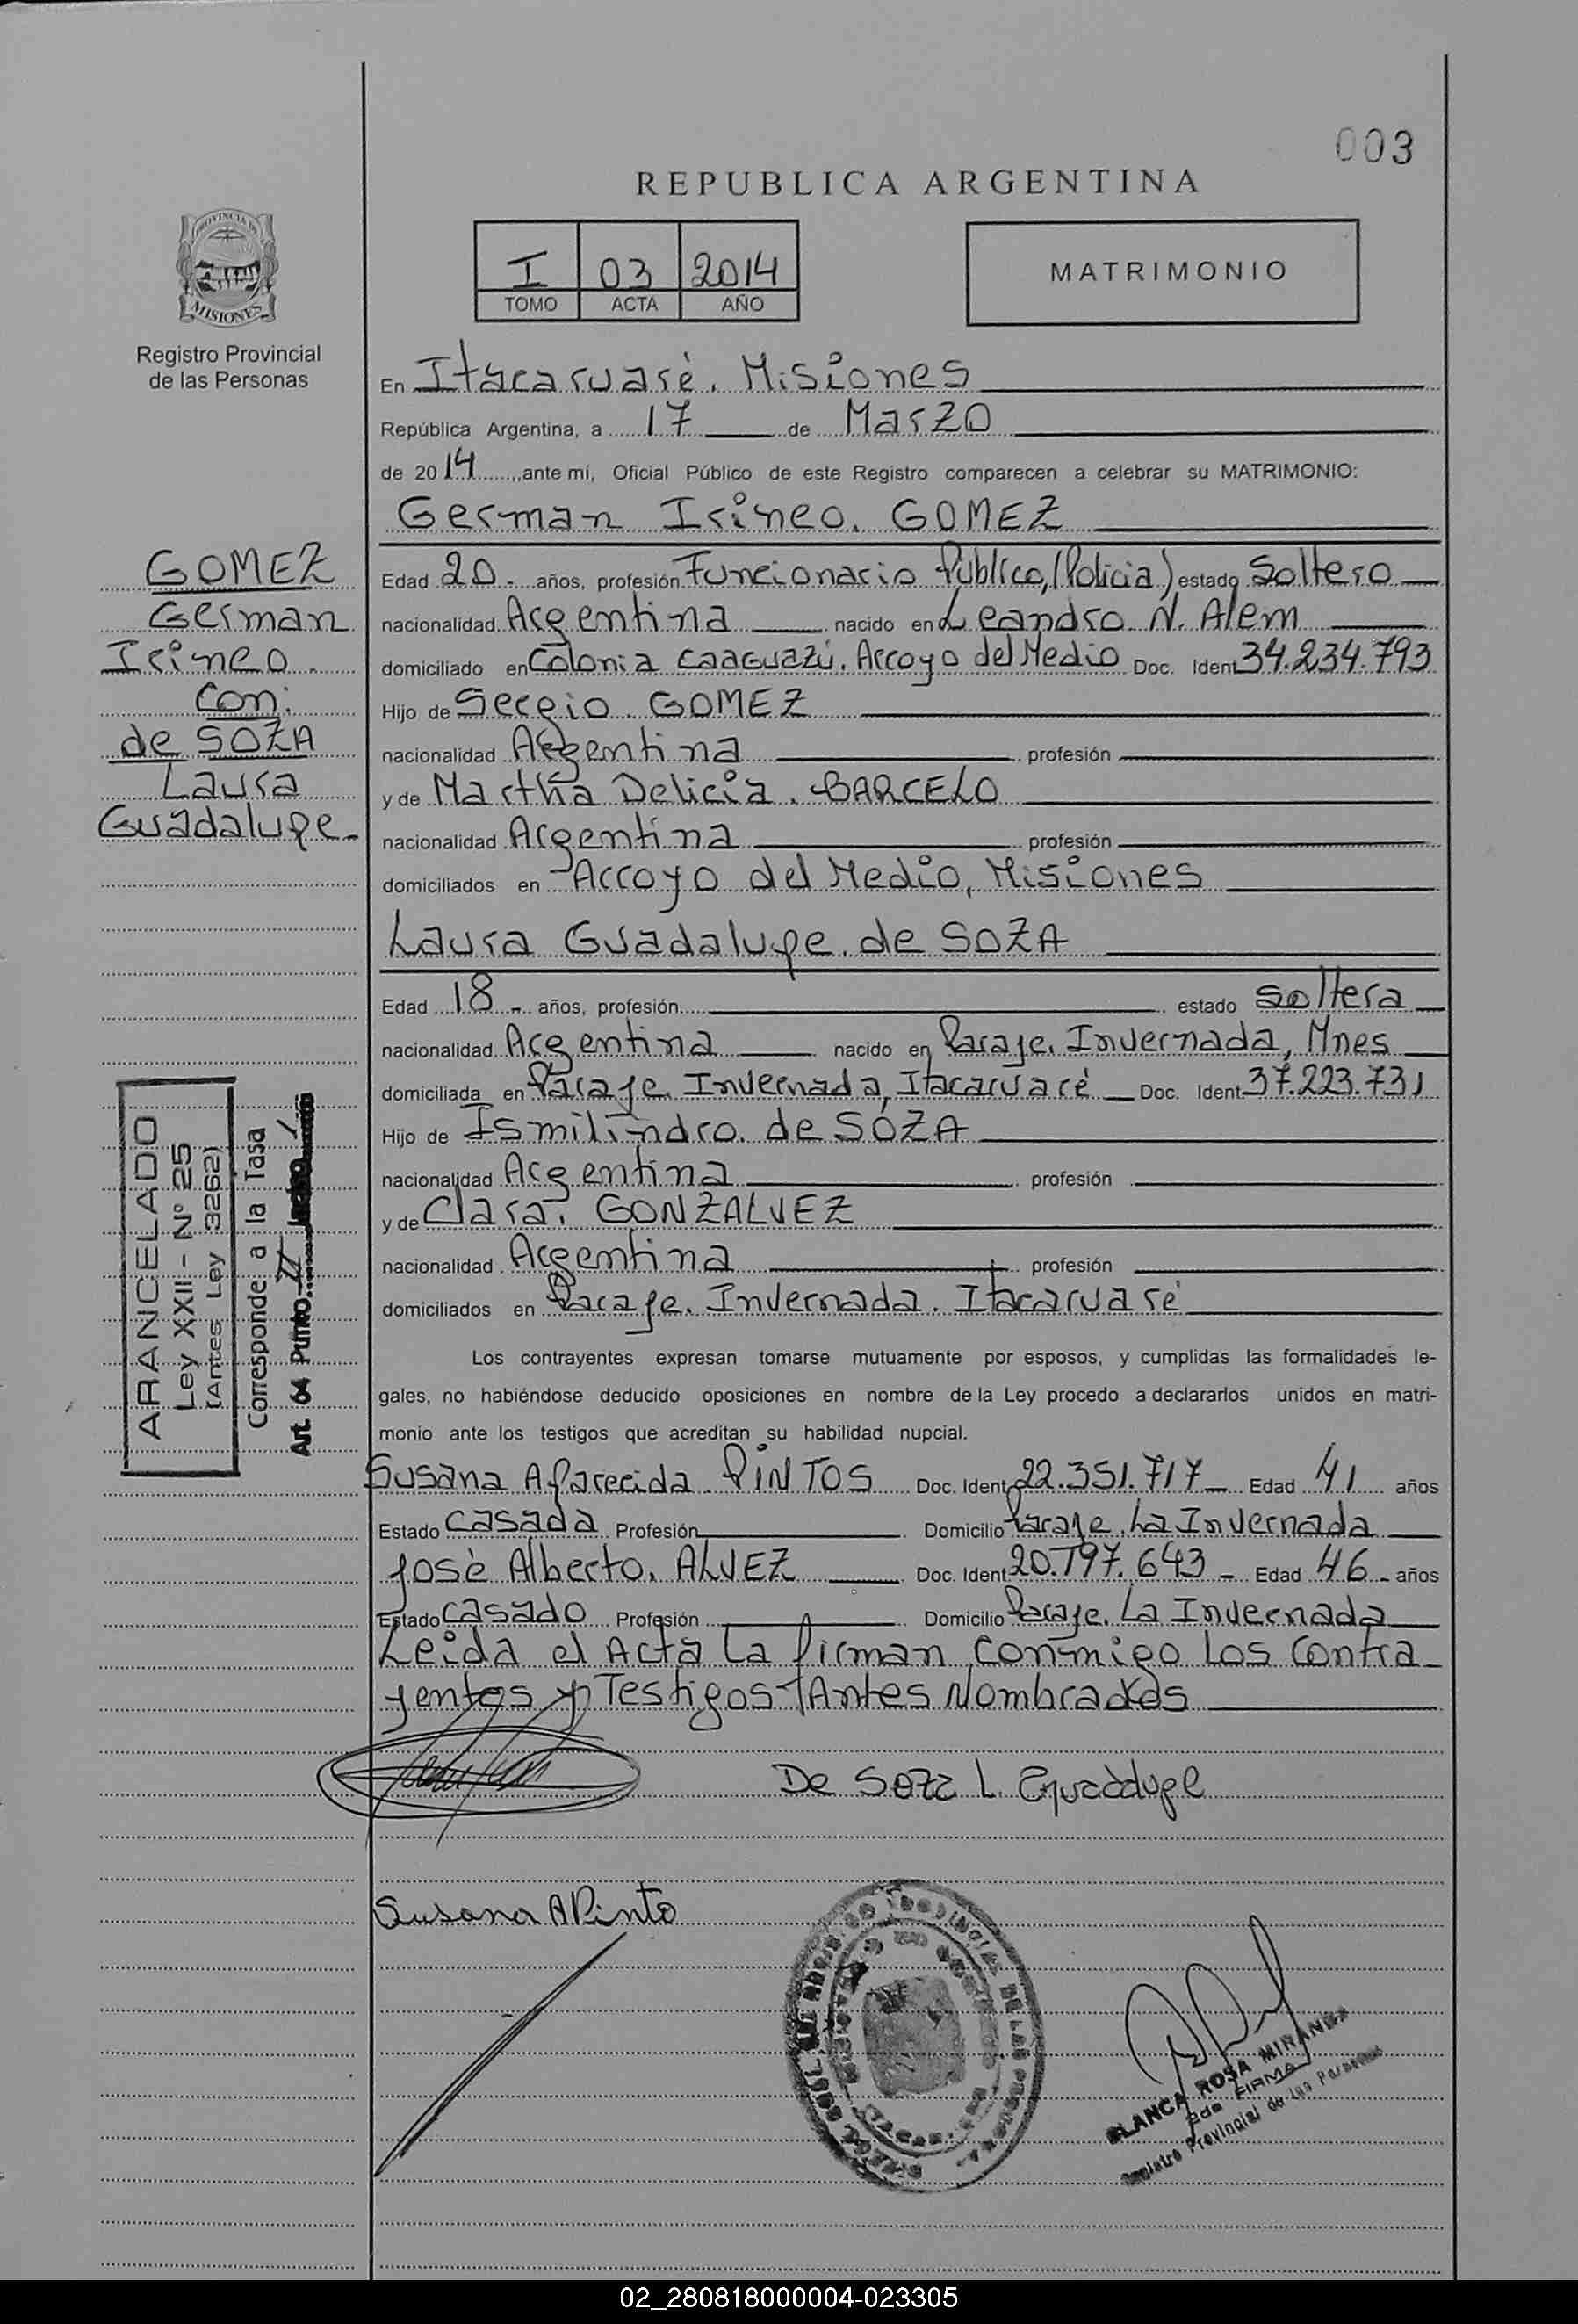 003
REPUBLICA ARGENTINA
PROVINCIA DE
MISIONES
Registro Provincial
de las Personas
I 03 2014
TOMO ACTA AÑO
MATRIMONIO
En Itacaruaré, Misiones
República Argentina, a 17 de Marzo
de 2014, ante mí, Oficial Público de este Registro comparecen a celebrar su MATRIMONIO:
German Irineo. GOMEZ
GOMEZ
German
Irineo.
Con:
de SOZA
Laura
Guadalupe.
Edad 20 años, profesión Funcionario Público, (Policia) estado Soltero
nacionalidad Argentina nacido en Leandro. N. Alem
domiciliado en Colonia CAAGUAZÚ. Arroyo del Medio Doc. Ident 34.234.793
Hijo de Sergio. GOMEZ
nacionalidad Argentina profesión
y de Martha Delicia. BARCELO
nacionalidad Argentina profesión
domiciliados en Arroyo del Medio, Misiones
Laura Guadalupe. de SOZA
Edad 18 años, profesión estado Soltera
nacionalidad Argentina nacido en Paraje. Invernada, Mnes
domiciliada en Paraje. Invernada, Itacaruaré Doc. Ident 37.223.731
Hijo de Ismilindro. de SOZA
nacionalidad Argentina profesión
y de Clara. GONZALVEZ
nacionalidad Argentina profesión
domiciliados en Paraje. Invernada. Itacaruaré
ARANCELADO
Ley XXII - Nº 25
(Antes Ley 3262)
Corresponde a la Tasa
Art. 64 Punto II
Los contrayentes expresan tomarse mutuamente por esposos, y cumplidas las formalidades le-
gales, no habiéndose deducido oposiciones en nombre de la Ley procedo a declararlos unidos en matri-
monio ante los testigos que acreditan su habilidad nupcial.
Susana Aparecida. PINTOS Doc. Ident 22.351.717 Edad 41 años
Estado Casada Profesión Domicilio Paraje. La Invernada
José Alberto. ALVEZ Doc. Ident 20.797.643 Edad 46 años
Estado Casado Profesión Domicilio Paraje. La Invernada
Leida el Acta La firman conmigo Los Contra
yentes y Testigos Antes Nombrados
De Soza L. Guadalupe
Susana A Pinto
BLANCA ROSA MIRANDA
2da FIRMA
Registro Provincial de las Personas
02_280818000004-023305